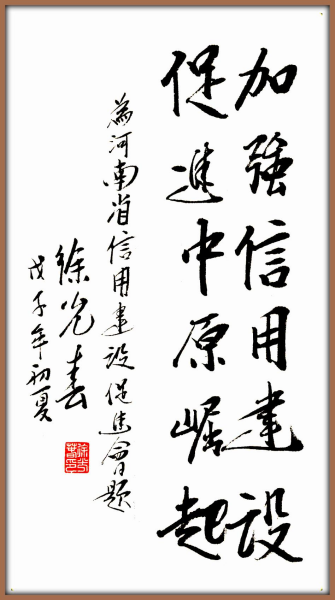 加強信用建設
促進中原崛起
為河南省信用建設促進會題
徐光春
戊子年初夏